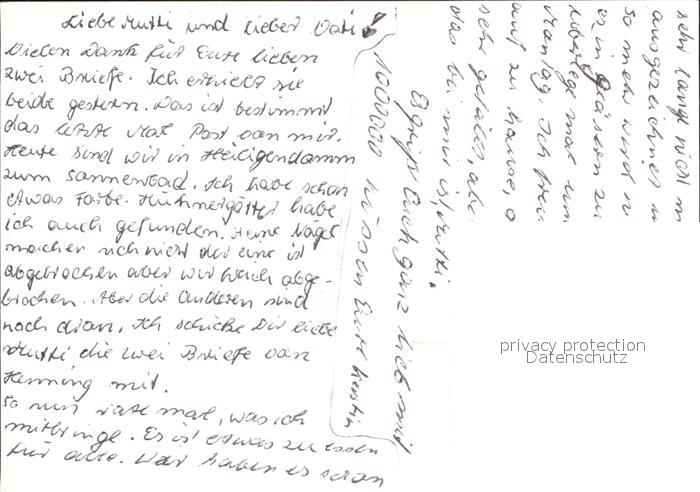 Liebe Mutti und lieber Vati!
Vielen Dank für Eure lieben
zwei Briefe. Ich erhielt sie
beide gestern. Das ist bestimmt
das letzte Mal Post von mir.
Heute sind wir in Heiligendamm
zum Sonnenbad. Ich habe schon
etwas Farbe. Hühnergötter habe
ich auch gefunden. Meine Nägel
machen sich nicht der eine ist
abgebrochen aber nur weich abge-
brochen. Aber die anderen sind
noch dran. Ich schicke Dir liebe
Mutti die zwei Briefe von
Henning mit.
So nun rate mal, was ich
mitbringe. Es ist etwas zu essen
für alle. Wir haben es schon
sehr lange nicht m
ausgezeichnet
so mehr wird
es in Gläsern zu
überlege mal um
Montag. Ich freu
auf zu Hause, o
sehr gefällt, aber
das bei mir ist, Mutti.
Es grüßt Euch ganz lieb mit
1000000 Küssen Eure Kerstin
privacy protection
Datenschutz